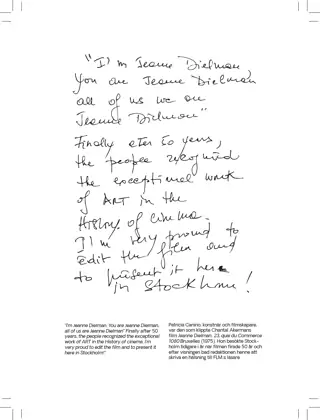 "I'm Jeanne Dielman,
You are Jeanne Dielman,
all of us we are
Jeanne Dielman"
Finally after 50 years,
the people recognized
the exceptional work
of ART in the
History of cinema.
I'm very proud to
edit the film and
to present it here
in Stockholm!
"I'm Jeanne Dielman. You are Jeanne Dielman,
all of us are Jeanne Dielman" Finally after 50
years, the people recognized the exceptional
work of ART in the History of cinema. I'm
very proud to edit the film and to present it
here in Stockholm!"
Patricia Canino, konstnär och filmskapare,
var den som klippte Chantal Akermans
film Jeanne Dielman, 23, quai du Commerce
1080 Bruxelles (1975). Hon besökte Stock-
holm tidigare i år när filmen firade 50 år och
efter visningen bad redaktionen henne att
skriva en hälsning till FLM:s läsare.